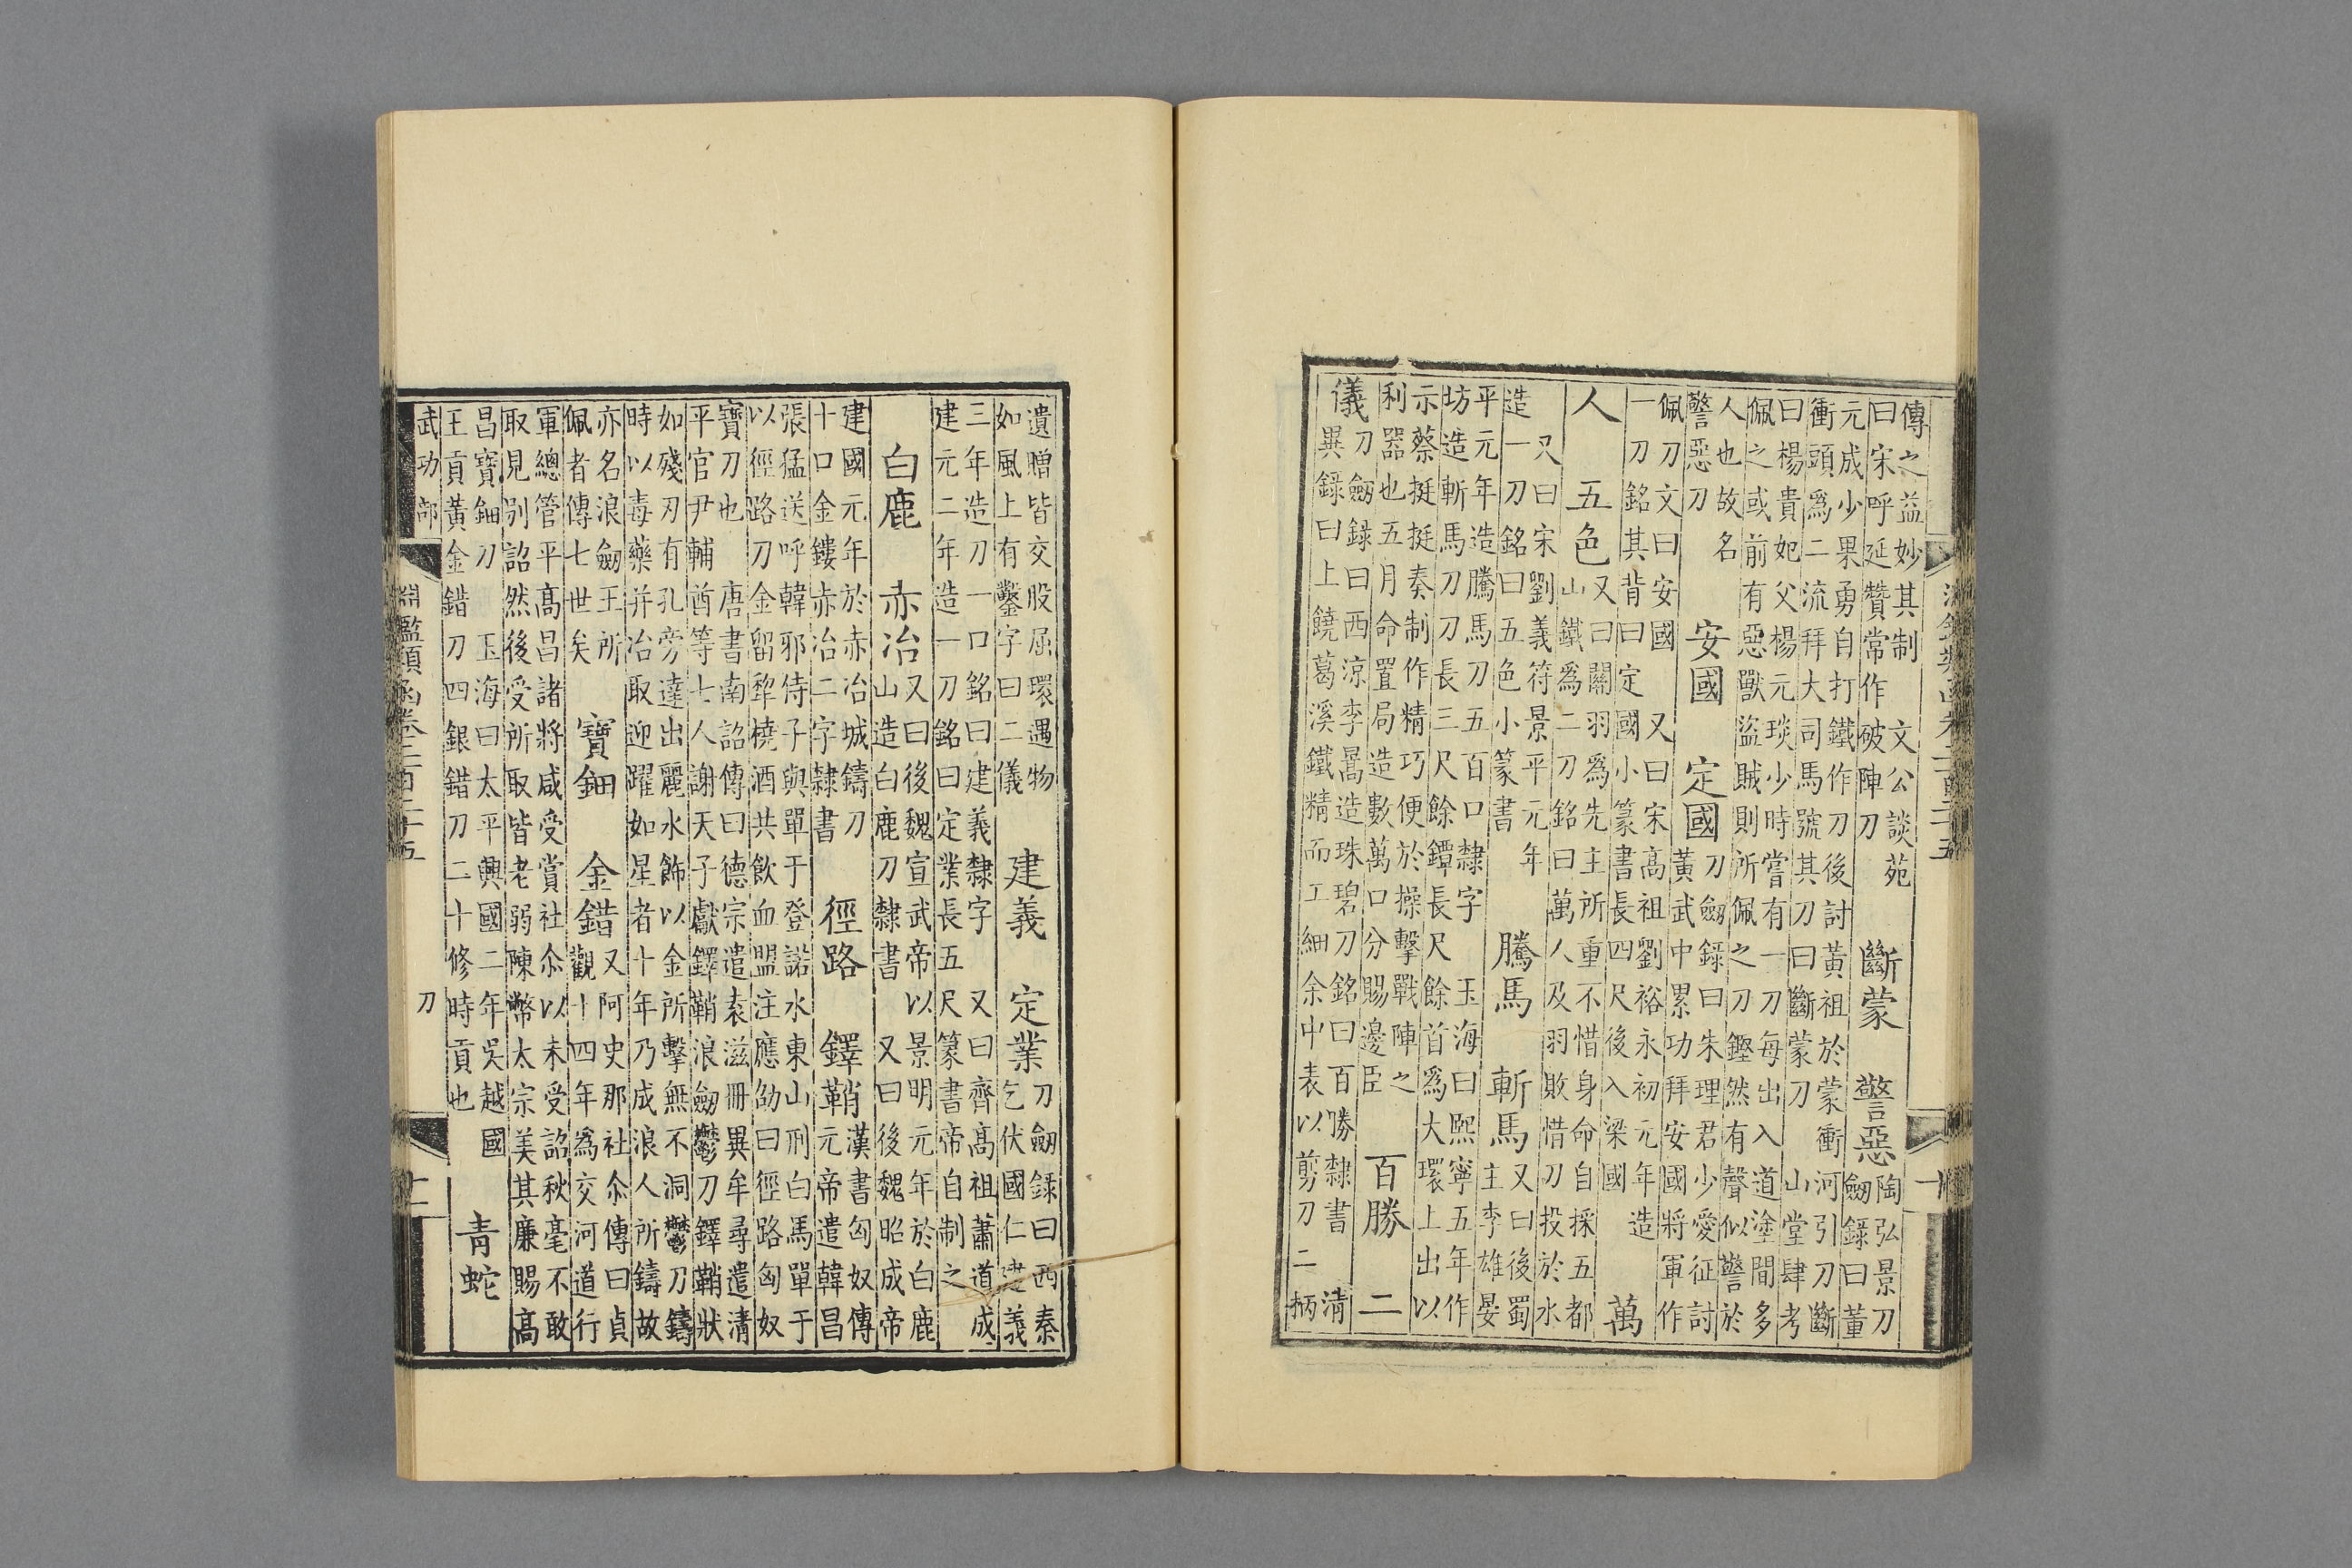 傳之益妙其制　文公談苑
曰宋呼延贊常作破陣刀
斷蒙　警惡
陶弘景刀
劒錄曰董
元成少果勇自打鐵作刀後討黃祖於蒙衝河引刀斷
衝頭爲二流拜大司馬號其刀曰斷蒙刀　山堂肆考
曰楊貴妃父楊元琰少時嘗有一刀每出入道塗間多
佩之或前有惡獸盜賊則所佩之刀鏗然有聲似警於
人也故名
警惡刀
安國　定國
刀劒錄曰朱理君少愛征討
黃武中累功拜安國將軍作
佩刀文曰安國　又曰宋高祖劉裕永初元年造
一刀銘其背曰定國小篆書長四尺後入梁國
萬
人　五色
又曰關羽爲先主所重不惜身命自採五都
山鐵爲二刀銘曰萬人及羽敗惜刀投於水
又曰宋劉義符景平元年
造一刀銘曰五色小篆書
騰馬　斬馬
又曰後蜀
主李雄晏
平元年造騰馬刀五百口隸字　玉海曰熙寧五年作
坊造斬馬刀刀長三尺餘鐔長尺餘首爲大環上出以
示蔡挺挺奏制作精巧便於操擊戰陣之
利器也五月命置局造數萬口分賜邊臣
百勝　二
儀
刀劒錄曰西涼李暠造珠碧刀銘曰百勝隸書　清
異錄曰上饒葛溪鐵精而工細余中表以剪刀二柄
遺贈皆交股屈環遇物
如風上有鑿字曰二儀
建義　定業
刀劒錄曰西秦
乞伏國仁建義
三年造刀一口銘曰建義隸字　又曰齊高祖蕭道成
建元二年造一刀銘曰定業長五尺篆書帝自制之
白鹿　赤冶
又曰後魏宣武帝以景明元年於白鹿
山造白鹿刀隸書　又曰後魏昭成帝
建國元年於赤冶城鑄刀
十口金鏤赤冶二字隸書
徑路　鐸鞘
漢書匈奴傳
元帝遣韓昌
張猛送呼韓邪侍子與單于登諾水東山刑白馬單于
以徑路刀金留犂撓酒共飲血盟注應劭曰徑路匈奴
寶刀也　唐書南詔傳曰德宗遣袁滋冊異牟尋遣清
平官尹輔酋等七人謝天子獻鐸鞘浪劒鬱刀鐸鞘狀
如殘刃有孔旁達出麗水飾以金所擊無不洞鬱刀鑄
時以毒藥并冶取迎躍如星者十年乃成浪人所鑄故
亦名浪劒王所
佩者傳七世矣
寶鈿　金錯
又阿史那社尒傳曰貞
觀十四年爲交河道行
軍總管平高昌諸將咸受賞社尒以未受詔秋毫不敢
取見别詔然後受所取皆老弱陳幣太宗美其廉賜高
昌寶鈿刀　玉海曰太平興國二年吳越國
王貢黃金錯刀四銀錯刀二十修時貢也
青蛇
武功部　淵鑑類函卷二百二十五　刀　十一